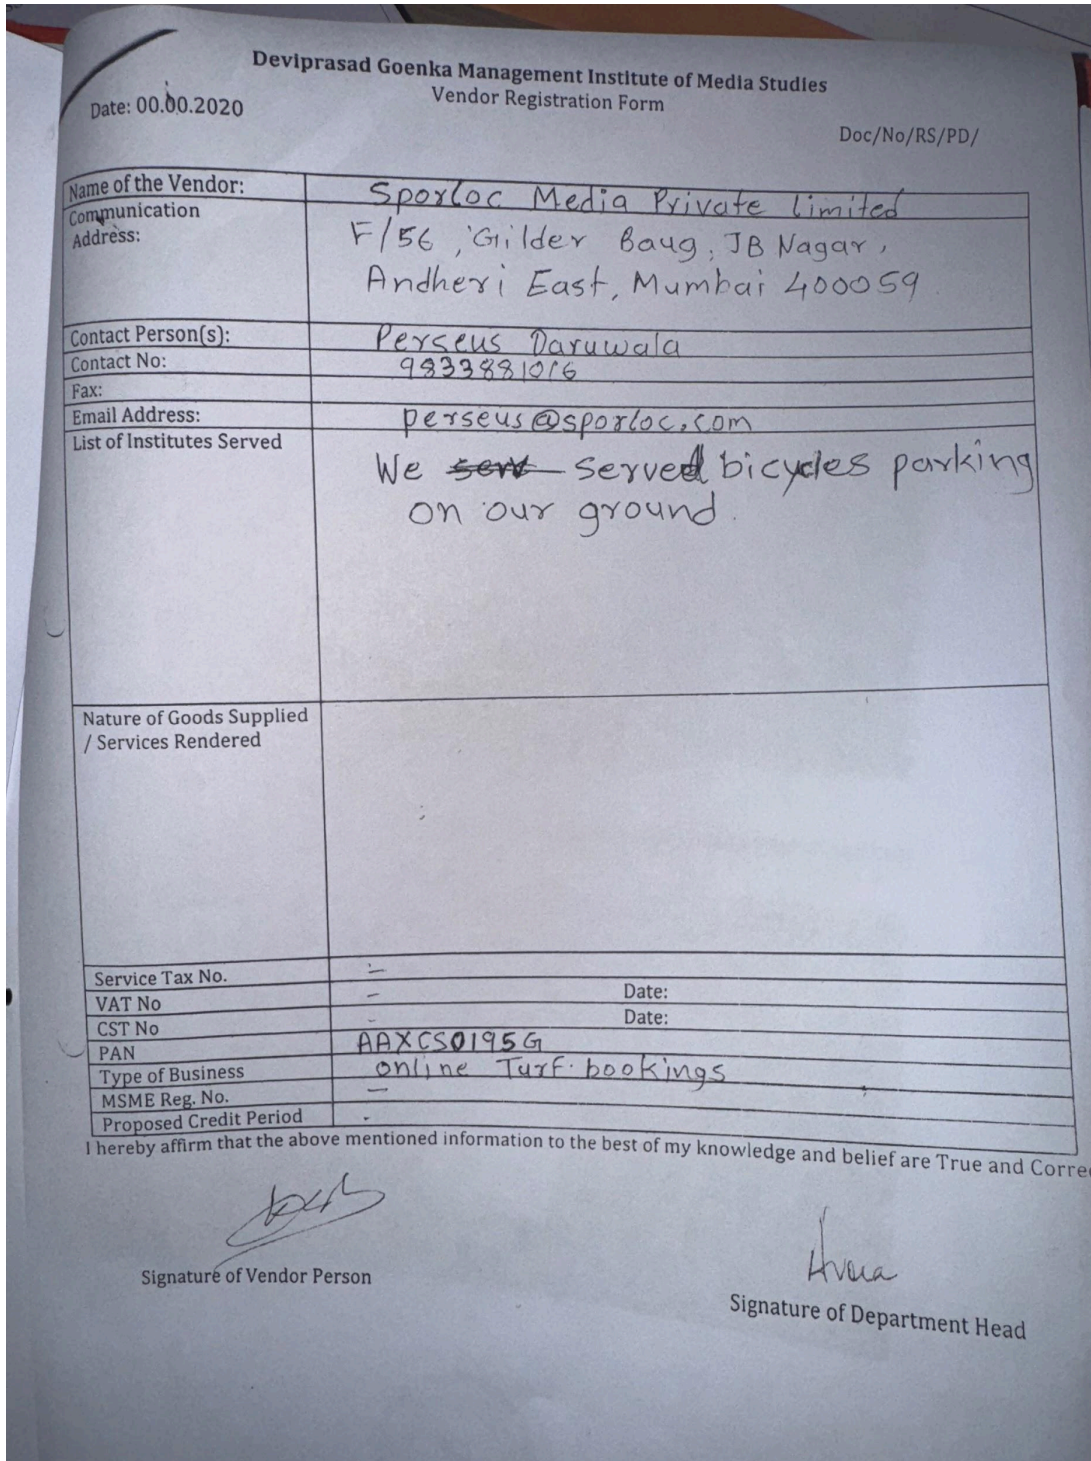 Deviprasad Goenka Management Institute of Media Studies
Vendor Registration Form
Date: 00.00.2020
Doc/No/RS/PD/
Name of the Vendor: Sporloc Media Private Limited
Communication
Address: F/56, Gilder Baug, JB Nagar,
Andheri East, Mumbai 400059
Contact Person(s): Perseus Daruwala
Contact No: 9833881016
Fax:
Email Address: perseus@sporloc.com
List of Institutes Served We serve served bicycles parking
on our ground.
Nature of Goods Supplied
/ Services Rendered
Service Tax No. -
VAT No - Date:
CST No - Date:
PAN AAXCS0195G
Type of Business online Turf bookings
MSME Reg. No. -
Proposed Credit Period -
I hereby affirm that the above mentioned information to the best of my knowledge and belief are True and Corre
Signature of Vendor Person
Signature of Department Head